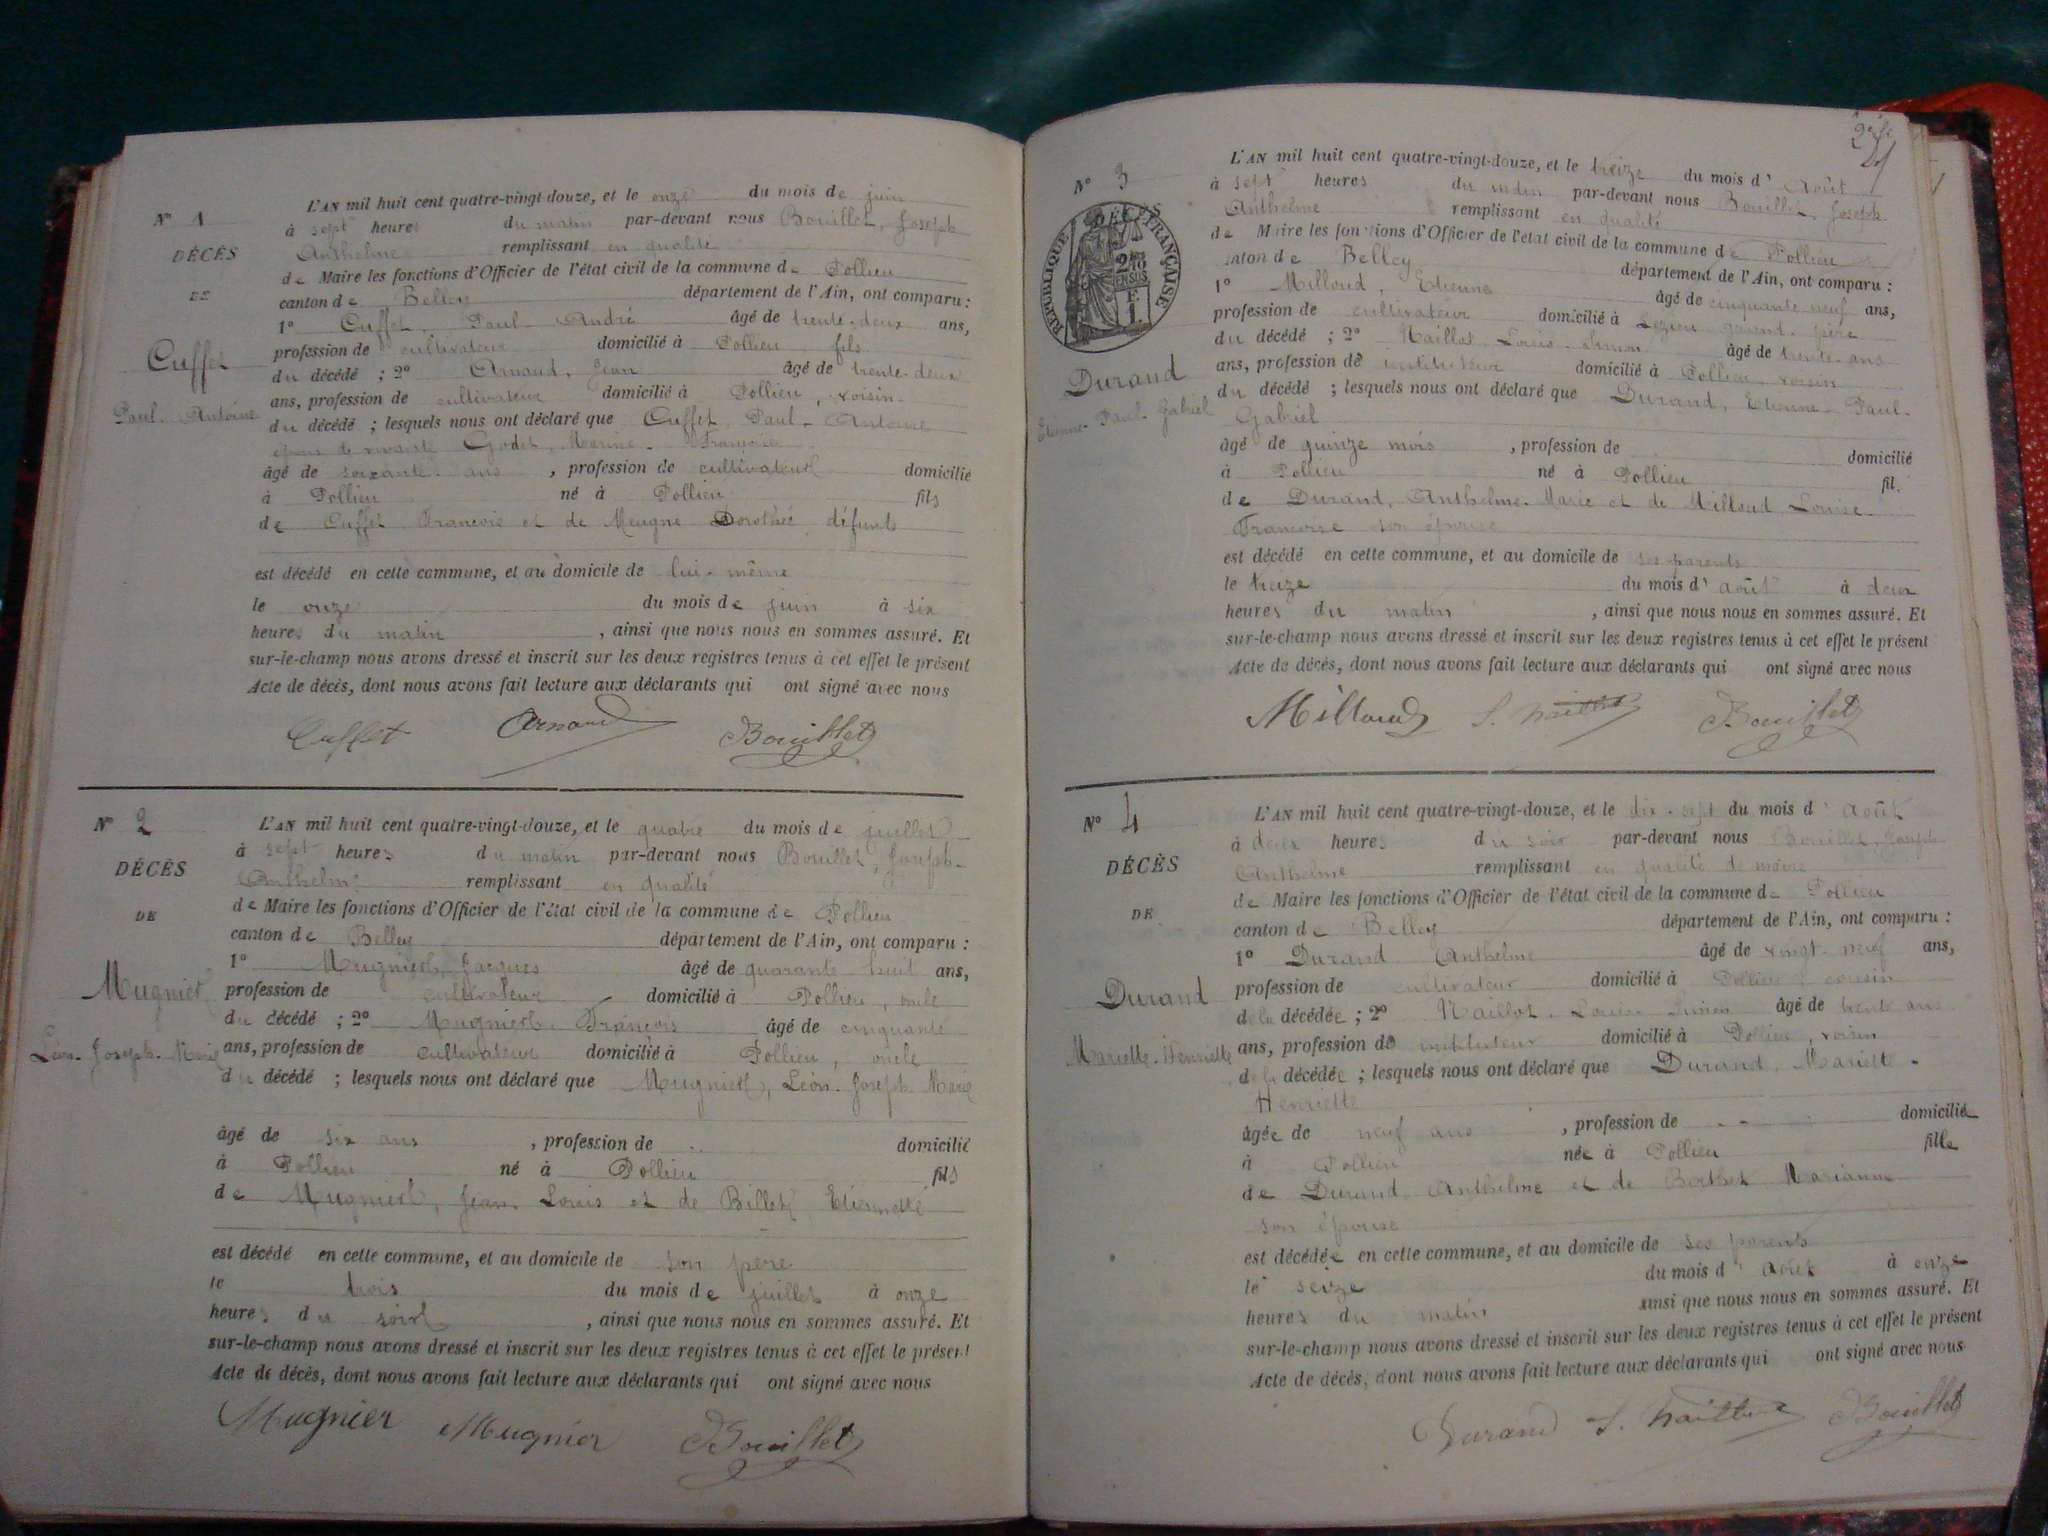 N° 1
DÉCÈS
DE
Cuffet
Paul-Antoine
L'AN mil huit cent quatre-vingt-douze, et le onze du mois de juin
à sept heures du matin par-devant nous Bouillet, Joseph
Anthelme remplissant en qualité
de Maire les fonctions d'Officier de l'état civil de la commune de Pollieu
canton de Belley département de l'Ain, ont comparu :
1° Cuffet, Paul-André âgé de trente-deux ans,
profession de cultivateur domicilié à Pollieu fils
du décédé ; 2° Arnaud, Jean âgé de trente-deux
ans, profession de cultivateur domicilié à Pollieu, voisin
du décédé ; lesquels nous ont déclaré que Cuffet, Paul-Antoine
époux de Godet, Marine-Françoise
âgé de soixante ans, profession de cultivateur domicilié
à Pollieu né à Pollieu fils
de Cuffet François et de Meugne Dorothée défunts
est décédé en cette commune, et au domicile de lui-même
le onze du mois de juin à six
heures du matin, ainsi que nous nous en sommes assuré. Et
sur-le-champ nous avons dressé et inscrit sur les deux registres tenus à cet effet le présent
Acte de décès, dont nous avons fait lecture aux déclarants qui ont signé avec nous
Cuffet Arnaud Bouillet
N° 2
DÉCÈS
DE
Mugnier
Léon-Joseph-Marie
L'AN mil huit cent quatre-vingt-douze, et le quatre du mois de juillet
à sept heures du matin par-devant nous Bouillet, Joseph-
Anthelme remplissant en qualité
de Maire les fonctions d'Officier de l'état civil de la commune de Pollieu
canton de Belley département de l'Ain, ont comparu :
1° Mugnier, Jacques âgé de quarante huit ans,
profession de cultivateur domicilié à Pollieu, oncle
du décédé ; 2° Mugnier, François âgé de cinquante
ans, profession de cultivateur domicilié à Pollieu, oncle
du décédé ; lesquels nous ont déclaré que Mugnier, Léon-Joseph-Marie
âgé de six ans, profession de domicilié
à Pollieu né à Pollieu fils
de Mugnier, Jean-Louis et de Billet, Etiennette
est décédé en cette commune, et au domicile de son père
le trois du mois de juillet à onze
heures du soir, ainsi que nous nous en sommes assuré. Et
sur-le-champ nous avons dressé et inscrit sur les deux registres tenus à cet effet le présent
Acte de décès, dont nous avons fait lecture aux déclarants qui ont signé avec nous
Mugnier Mugnier Bouillet
N° 3
DÉCÈS
RÉPUBLIQUE FRANÇAISE
Durand
Etienne-Paul-Gabriel
L'AN mil huit cent quatre-vingt-douze, et le treize du mois d'Août
à sept heures du matin par-devant nous Bouillet, Joseph
Anthelme remplissant en qualité
de Maire les fonctions d'Officier de l'état civil de la commune de Pollieu
canton de Belley département de l'Ain, ont comparu :
1° Milloud, Etienne âgé de cinquante neuf ans,
profession de cultivateur domicilié à Lezieu grand-père
du décédé ; 2° Naillot Louis-Simon âgé de trente ans
ans, profession de instituteur domicilié à Pollieu, voisin
du décédé ; lesquels nous ont déclaré que Durand, Etienne-Paul-
Gabriel
âgé de quinze mois, profession de domicilié
à Pollieu né à Pollieu fil
de Durand, Anthelme-Marie et de Milloud Louise-
Françoise son épouse
est décédé en cette commune, et au domicile de ses parents
le treize du mois d'août à deux
heures du matin, ainsi que nous nous en sommes assuré. Et
sur-le-champ nous avons dressé et inscrit sur les deux registres tenus à cet effet le présent
Acte de décès, dont nous avons fait lecture aux déclarants qui ont signé avec nous
Milloud Bouillet
N° 4
DÉCÈS
DE
Durand
Mariette-Henriette
L'AN mil huit cent quatre-vingt-douze, et le dix-sept du mois d'août
à deux heures du soir par-devant nous Bouillet, Joseph
Anthelme remplissant en qualité de maire
de Maire les fonctions d'Officier de l'état civil de la commune de Pollieu
canton de Belley département de l'Ain, ont comparu :
1° Durand Anthelme âgé de vingt-neuf ans,
profession de cultivateur domicilié à Pollieu, cousin
de la décédée ; 2° Naillot Louis-Simon âgé de trente ans
ans, profession de instituteur domicilié à Pollieu, voisin
de la décédée ; lesquels nous ont déclaré que Durand, Mariette-
Henriette
âgée de neuf ans, profession de domiciliée
à Pollieu née à Pollieu fille
de Durand Anthelme et de Berthet Marianne
son épouse
est décédée en cette commune, et au domicile de ses parents
le seize du mois d'août à onze
heures du matin ainsi que nous nous en sommes assuré. Et
sur-le-champ nous avons dressé et inscrit sur les deux registres tenus à cet effet le présent
Acte de décès, dont nous avons fait lecture aux déclarants qui ont signé avec nous
Durand Bouillet